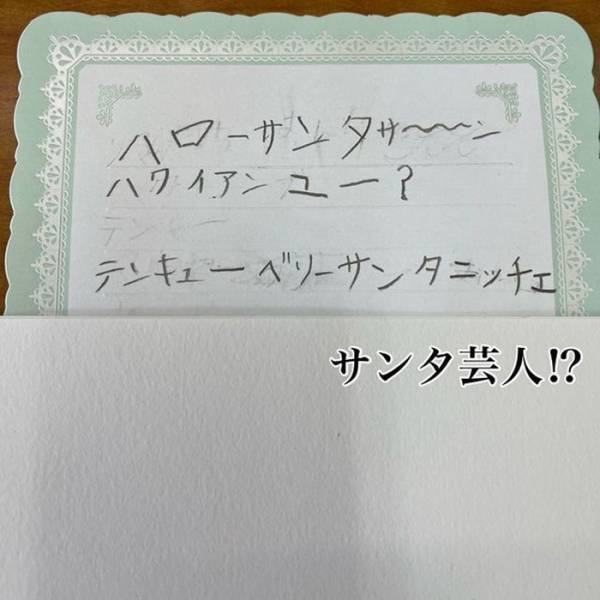 ハローサンタサ〜〜〜ン
ハワイアンユー？
テンキュー
テンキューベリーサンタニッチェ
サンタ芸人!?